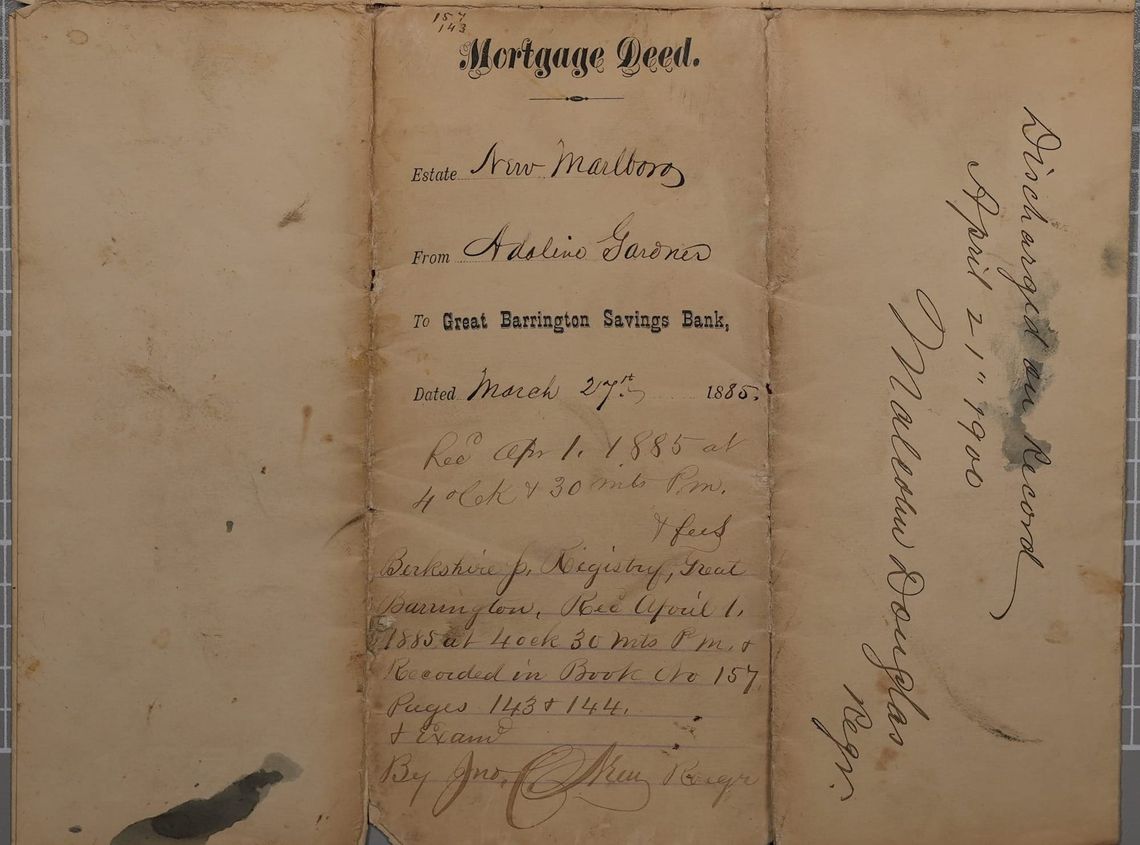 157
143
Mortgage Deed.
Estate New Marlboro
From Adaline Gardner
To Great Barrington Savings Bank,
Dated March 27th 1885.
Recd Apr 1. 1885 at
4 oClk & 30 mts P.m.
& fees
Berkshire So. Registry, Great
Barrington, Recd April 1.
1885 at 4 ock 30 mts P.m. &
Recorded in Book No 157
Pages 143 & 144.
& Examd
By Jno. Regr
Discharged on Record
April 21" 1900
Malcolm Douglas
Regr.